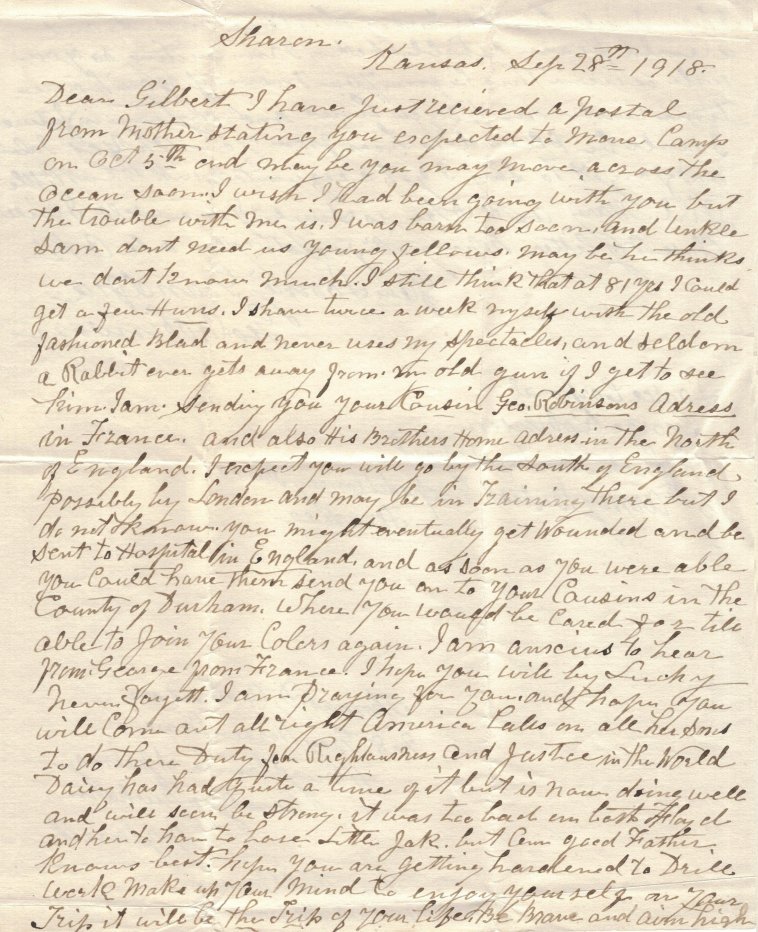 Sharon.
Kansas. Sep 28th 1918.
Dear Gilbert I have Just recieved a postal
from Mother stating you expected to Move Camp
on Oct 5th and may be you may move across the
Ocean soon. I wish I had been going with you but
the trouble with me is. I was born too soon. and Unkle
Sam dont need us young fellows. may be he thinks
we dont know much. I still think that at 81 yrs I Could
get a few Huns. I shave twice a week myself with the old
fashioned Blad and never uses my spectacles, and seldom
a Rabbit ever gets away from m old gun if I get to see
him. I am sending you your Cousin Geo. Robinsons Adress
in France. and also His Brothers Home adress in the North
of England. I expect you will go by the South of England
possibly by London and may be in Training there but I
do not know. you might eventually get Wounded and be
sent to Hospital in England. and as soon as you were able
you Could have them send you on to your Cousins in the
County of Durham. Where you would be Cared for till
able to Join your Colors again. I am anxius to hear
from George from France. I hope you will by Lucky
Never Forgett. I am Praying for you. and I hope you
will Come out all right America Calls on all her Sons
to do there Duty for Rightousness and Justice in the World
Daisy has had quite a time of it but is now doing well
and will soon be strong. it was too bad on both Floyd
and her to have to Lose Little Jak. but Our good Father
knows best. hope you are getting hardened to Drill
Work Make up your Mind to enjoy yourself on your
Trip it will be the Trip of your Life. Be Brave and aim high